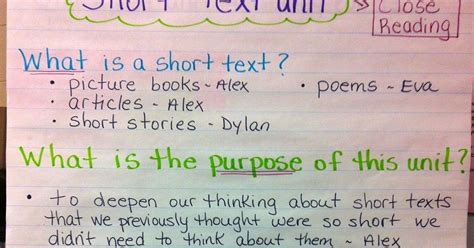 Short Text Unit → Close
Reading
What is a short text?
• picture books - Alex • poems - Eva
• articles - Alex
• short stories - Dylan
What is the purpose of this unit?
• to deepen our thinking about short texts
that we previously thought were so short we
didn't need to think about them - Alex